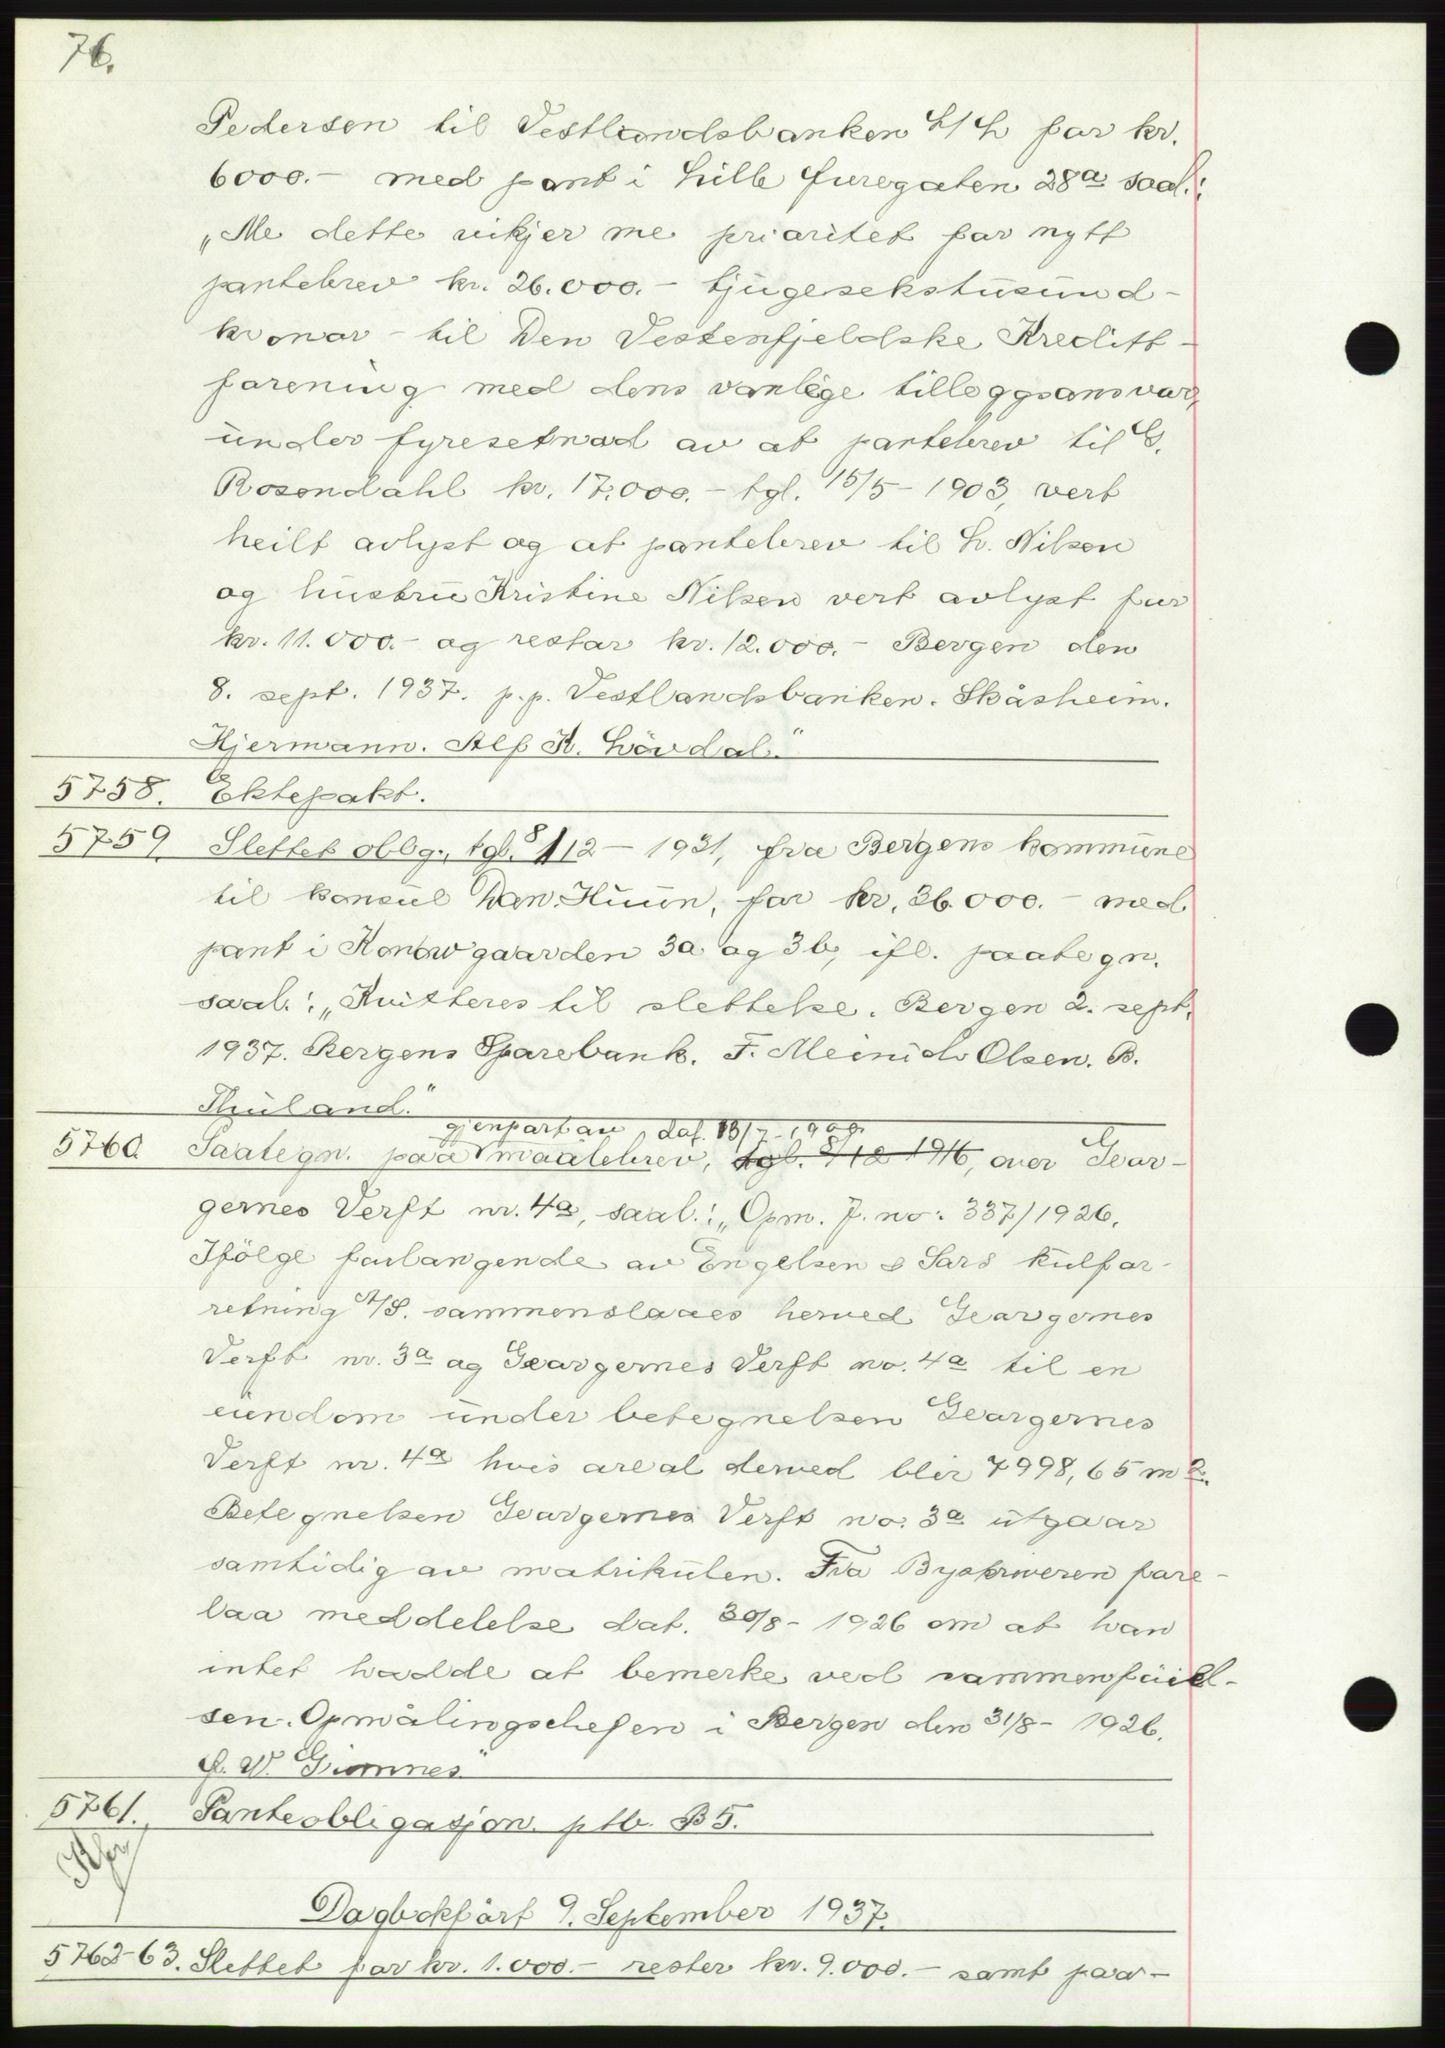 76.
Pedersen til Vestlandsbanken L/L for kr.
6000.- med pant i Lille Furegaten 28a saal.:
„Me dette vikjer me prioritet for nytt
pantebrev kr. 26.000.- tjugesekstusund-
kronor - til Den Vestenfjeldske Kreditt-
forening med dens vanlege tilleggsansvar,
under fyresetnad av at pantebrev til C.
Rosendahl kr. 17.000.- tgl. 15/5-1903, vert
heilt avlyst og at pantebrev til L. Nilsen
og hustru Kristine Nilsen vert avlyst fur
kr. 11.000.- og restar kr. 12.000.- Bergen den
8. sept. 1937. p.p. Vestlandsbanken. Skåsheim.
Hjermann. Alf K. Lövdal."
5758. Ektepakt.
5759. Slettet oblg., tgl. 8/12-1931, fra Bergens kommune
til konsul Dan. Huun, for kr. 36.000.- med
pant i Konowgaarden 3a og 3b, ifl. paategn.
saal.: „Kvitteres til slettelse. Bergen 2. sept.
1937. Bergens Sparebank. F. Meinich Olsen. B.
Thuland."
gjenpart av , dat. 13/7-1900
5760 Paategn. paa maalebrev, tgl. 8/12 1916, over Geor-
gernes Verft nr. 4a, saal.: „Opm. J. no: 337/1926.
Ifölge forlangende av Engelsen & Sars kulfor-
retning A/S. sammenslaaes herved Georgernes
Verft nr. 3a og Georgernes Verft no. 4a til en
eiendom under betegnelsen Georgernes
Verft nr. 4a hvis areal derved blir 7998,65 m2.
Betegnelsen Georgernes Verft no. 3a utgaar
samtidig av matrikulen. Fra Byskriveren fore-
laa meddelelse dat. 30/8-1926 om at han
intet hadde at bemerke ved sammenföiel-
sen. Opmålingschefen i Bergen den 31/8-1926.
W. Gimnes"
5761. Panteobligasjon. ptb. B5.
Dagbokfört 9. September 1937.
5762-63. Slettet for kr. 1.000.- rester kr. 9.000.- samt paa-